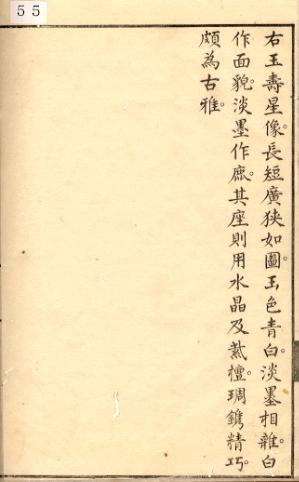 55
右玉壽星像。長短廣狹如圖。玉色青白。淡墨相雜。白
作面貌。淡墨作鹿。其座則用水晶及紫檀。琱鐫精巧。
頗為古雅。